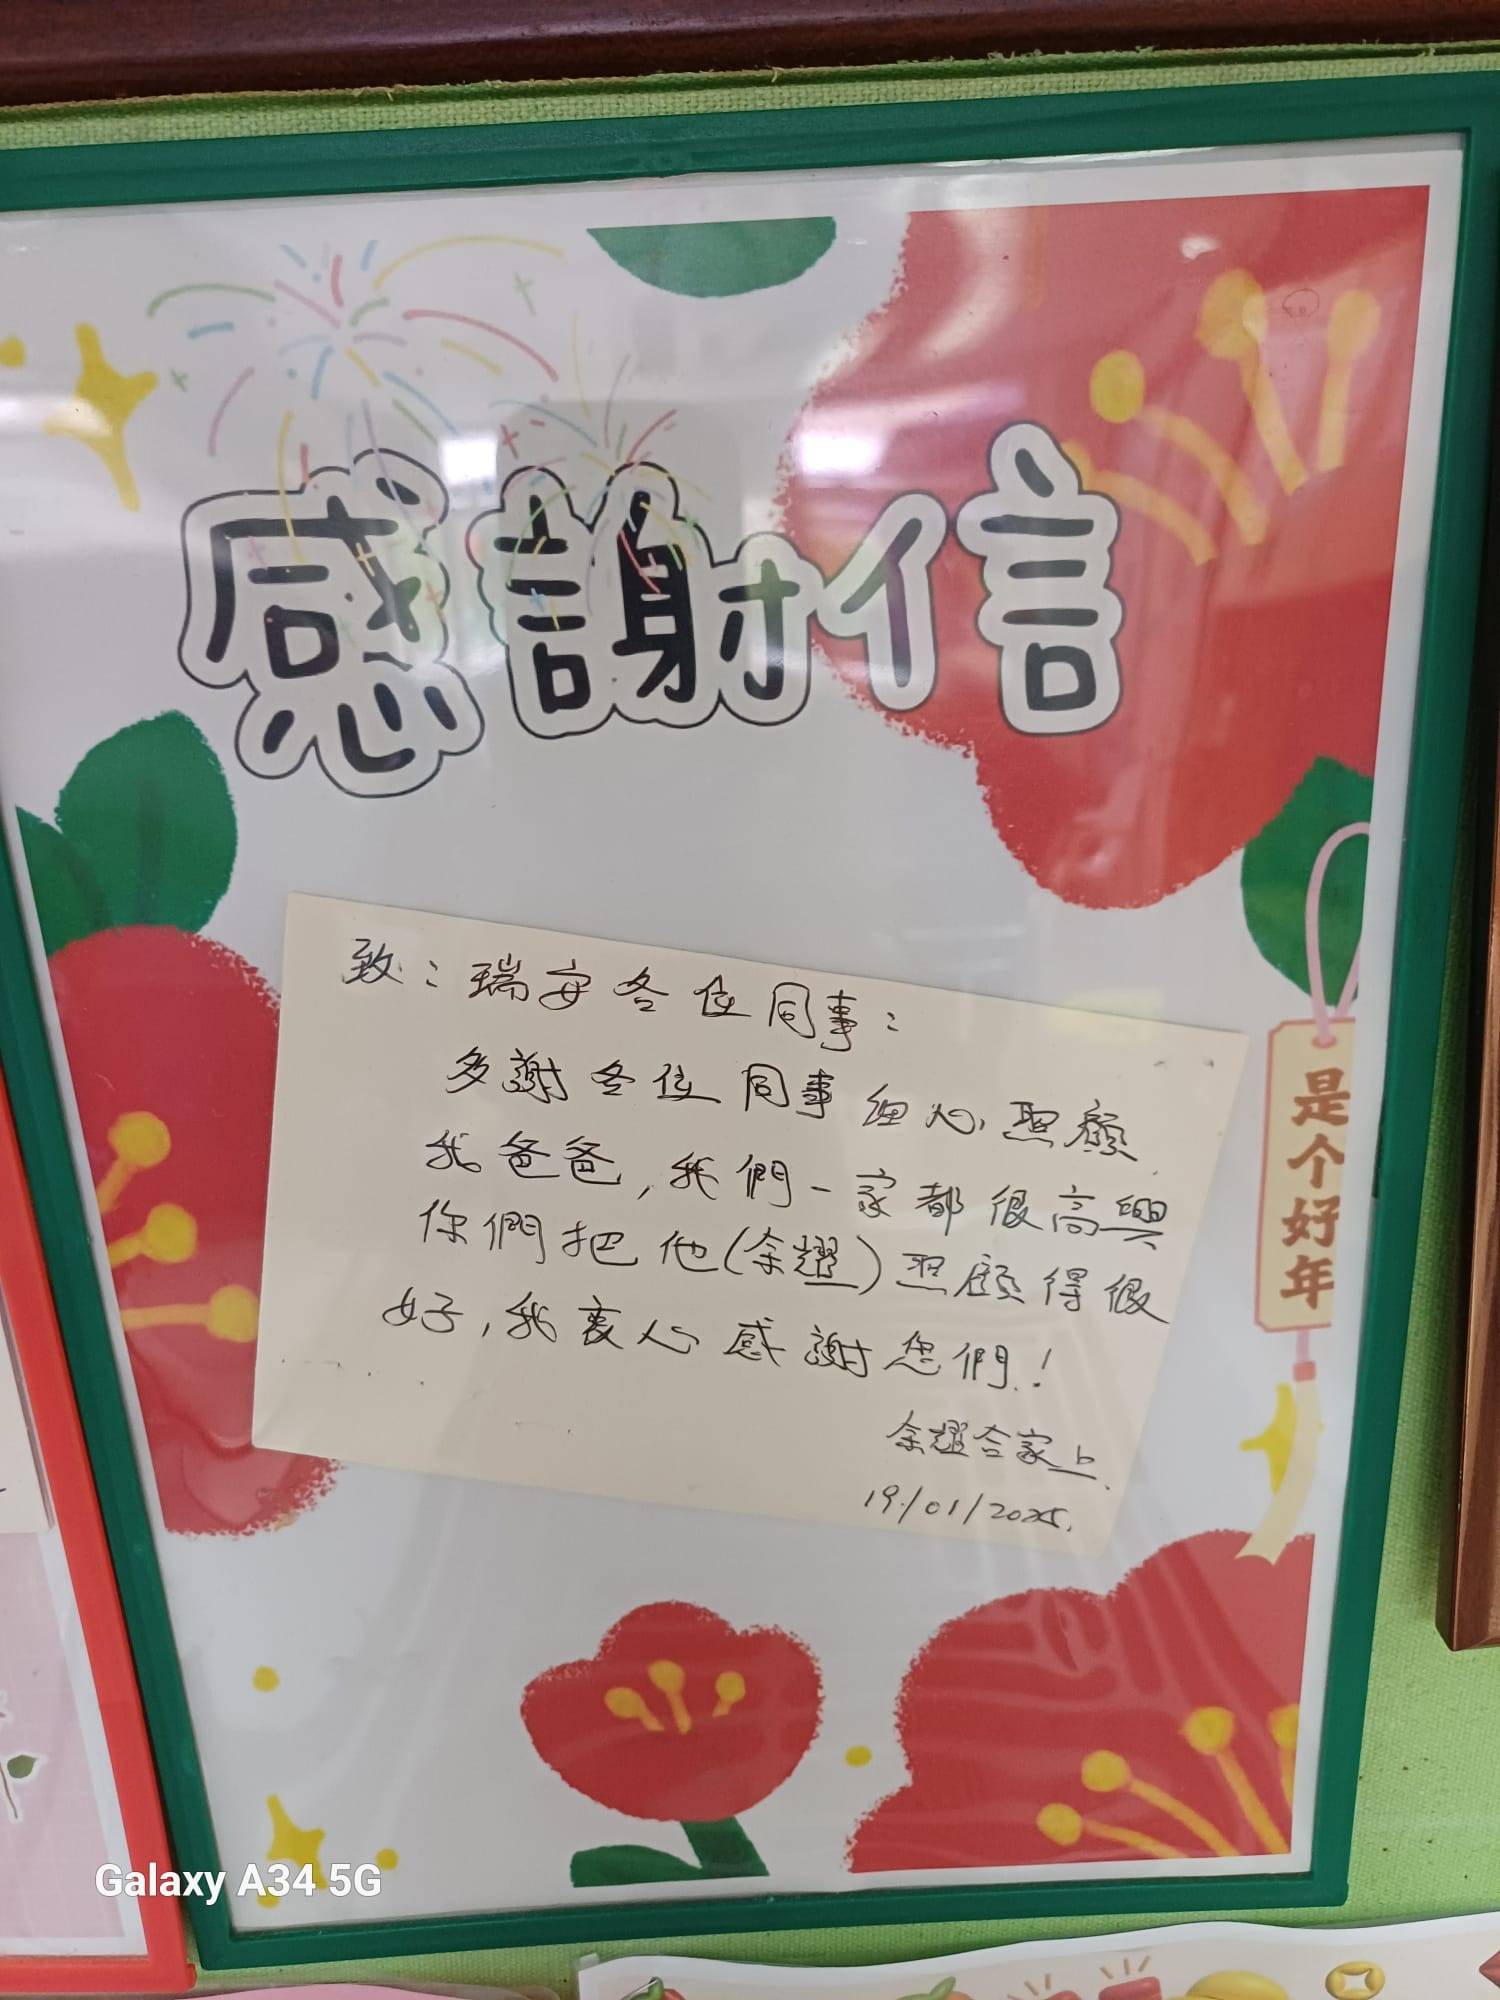 感謝信
致：瑞安各位同事：
多謝各位同事細心照顧
我爸爸，我們一家都很高興
你們把他(余耀)照顧得很
好，我衷心感謝您們！
余耀合家上
19/01/2025.
是个好年
Galaxy A34 5G